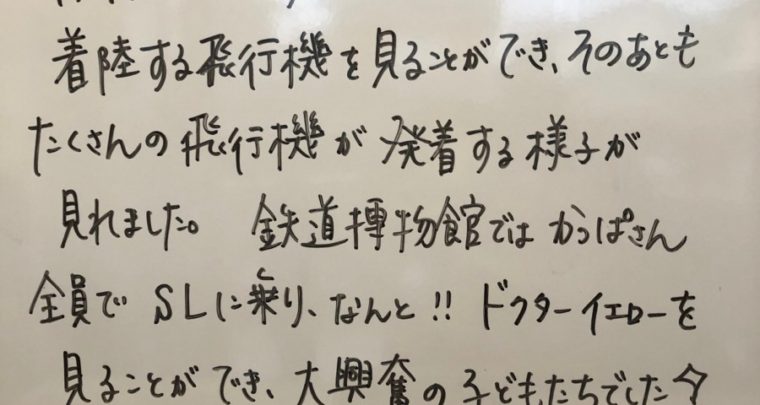 着陸する飛行機を見ることができ、そのあとも
たくさんの飛行機が発着する様子が
見れました。 鉄道博物館では かっぱさん
全員で SLに乗り、なんと!! ドクターイエローを
見ることができ、大興奮の子どもたちでした